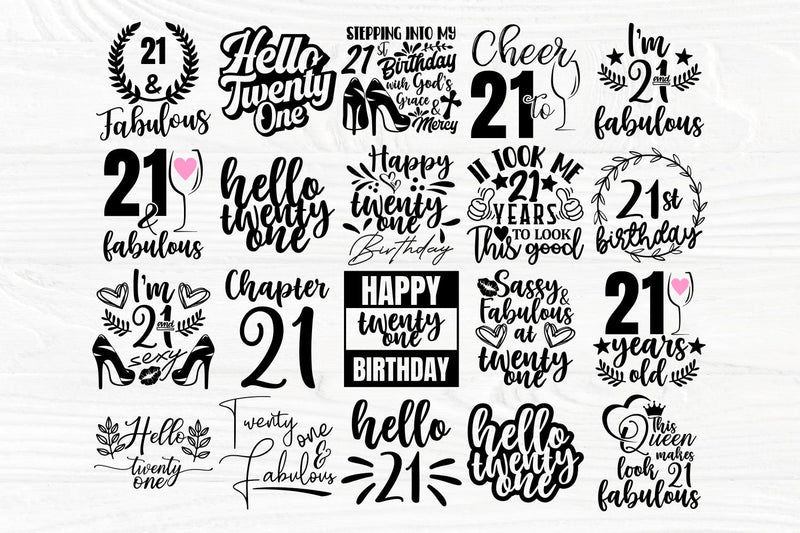 21
&
Fabulous
Hello
Twenty
One
STEPPING INTO MY
21st Birthday
with God's
Grace &
Mercy
Cheer
21 to
I'm
21 and
fabulous
21
&
fabulous
hello
twenty
one
Happy
twenty
one
Birthday
IT TOOK ME
21
YEARS
TO LOOK
This good
21st
birthday
I'm
21 and
sexy
Chapter
21
HAPPY
twenty
one
BIRTHDAY
Sassy
&
Fabulous
at
twenty
one
21
years
old
Hello
twenty
one
Twenty
one
&
Fabulous
hello
21
hello
twenty
one
This
Queen
makes
look 21
fabulous